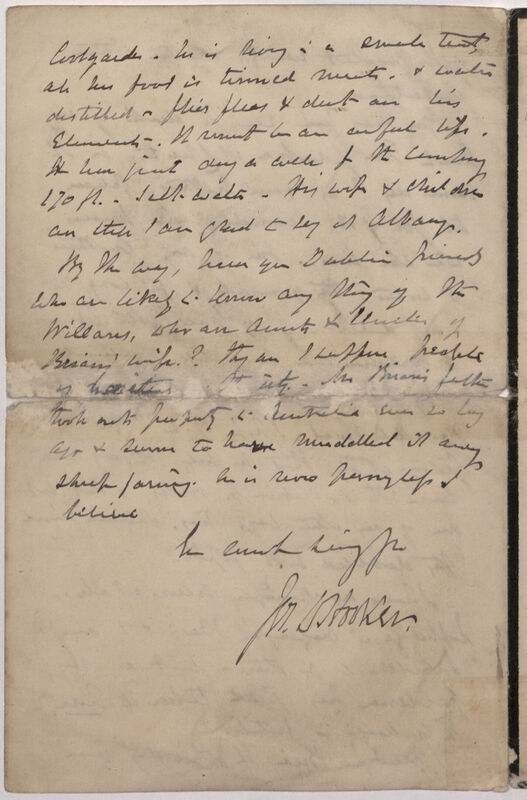 Coolgardie. he is living in a small tent,
all his food is tinned meats. & water
distilled - flies fleas & dust are his
Elements. It must be an awful life.
He has just dug a well for the Company
170 ft. - Salt-water - His wife & children
are still I am glad to say at Albany.
By the way, have you Dublin friends
who are likely to know any thing of the
Willans, who are Aunts & Uncles of
Brian's wife? They are I suppose, people
of position in the city. Mrs Brian's father
took out property to Australia ever so long
ago & seems to have muddled it away
sheep farming. he is now pennyless I
believe
Jos. D Hooker.